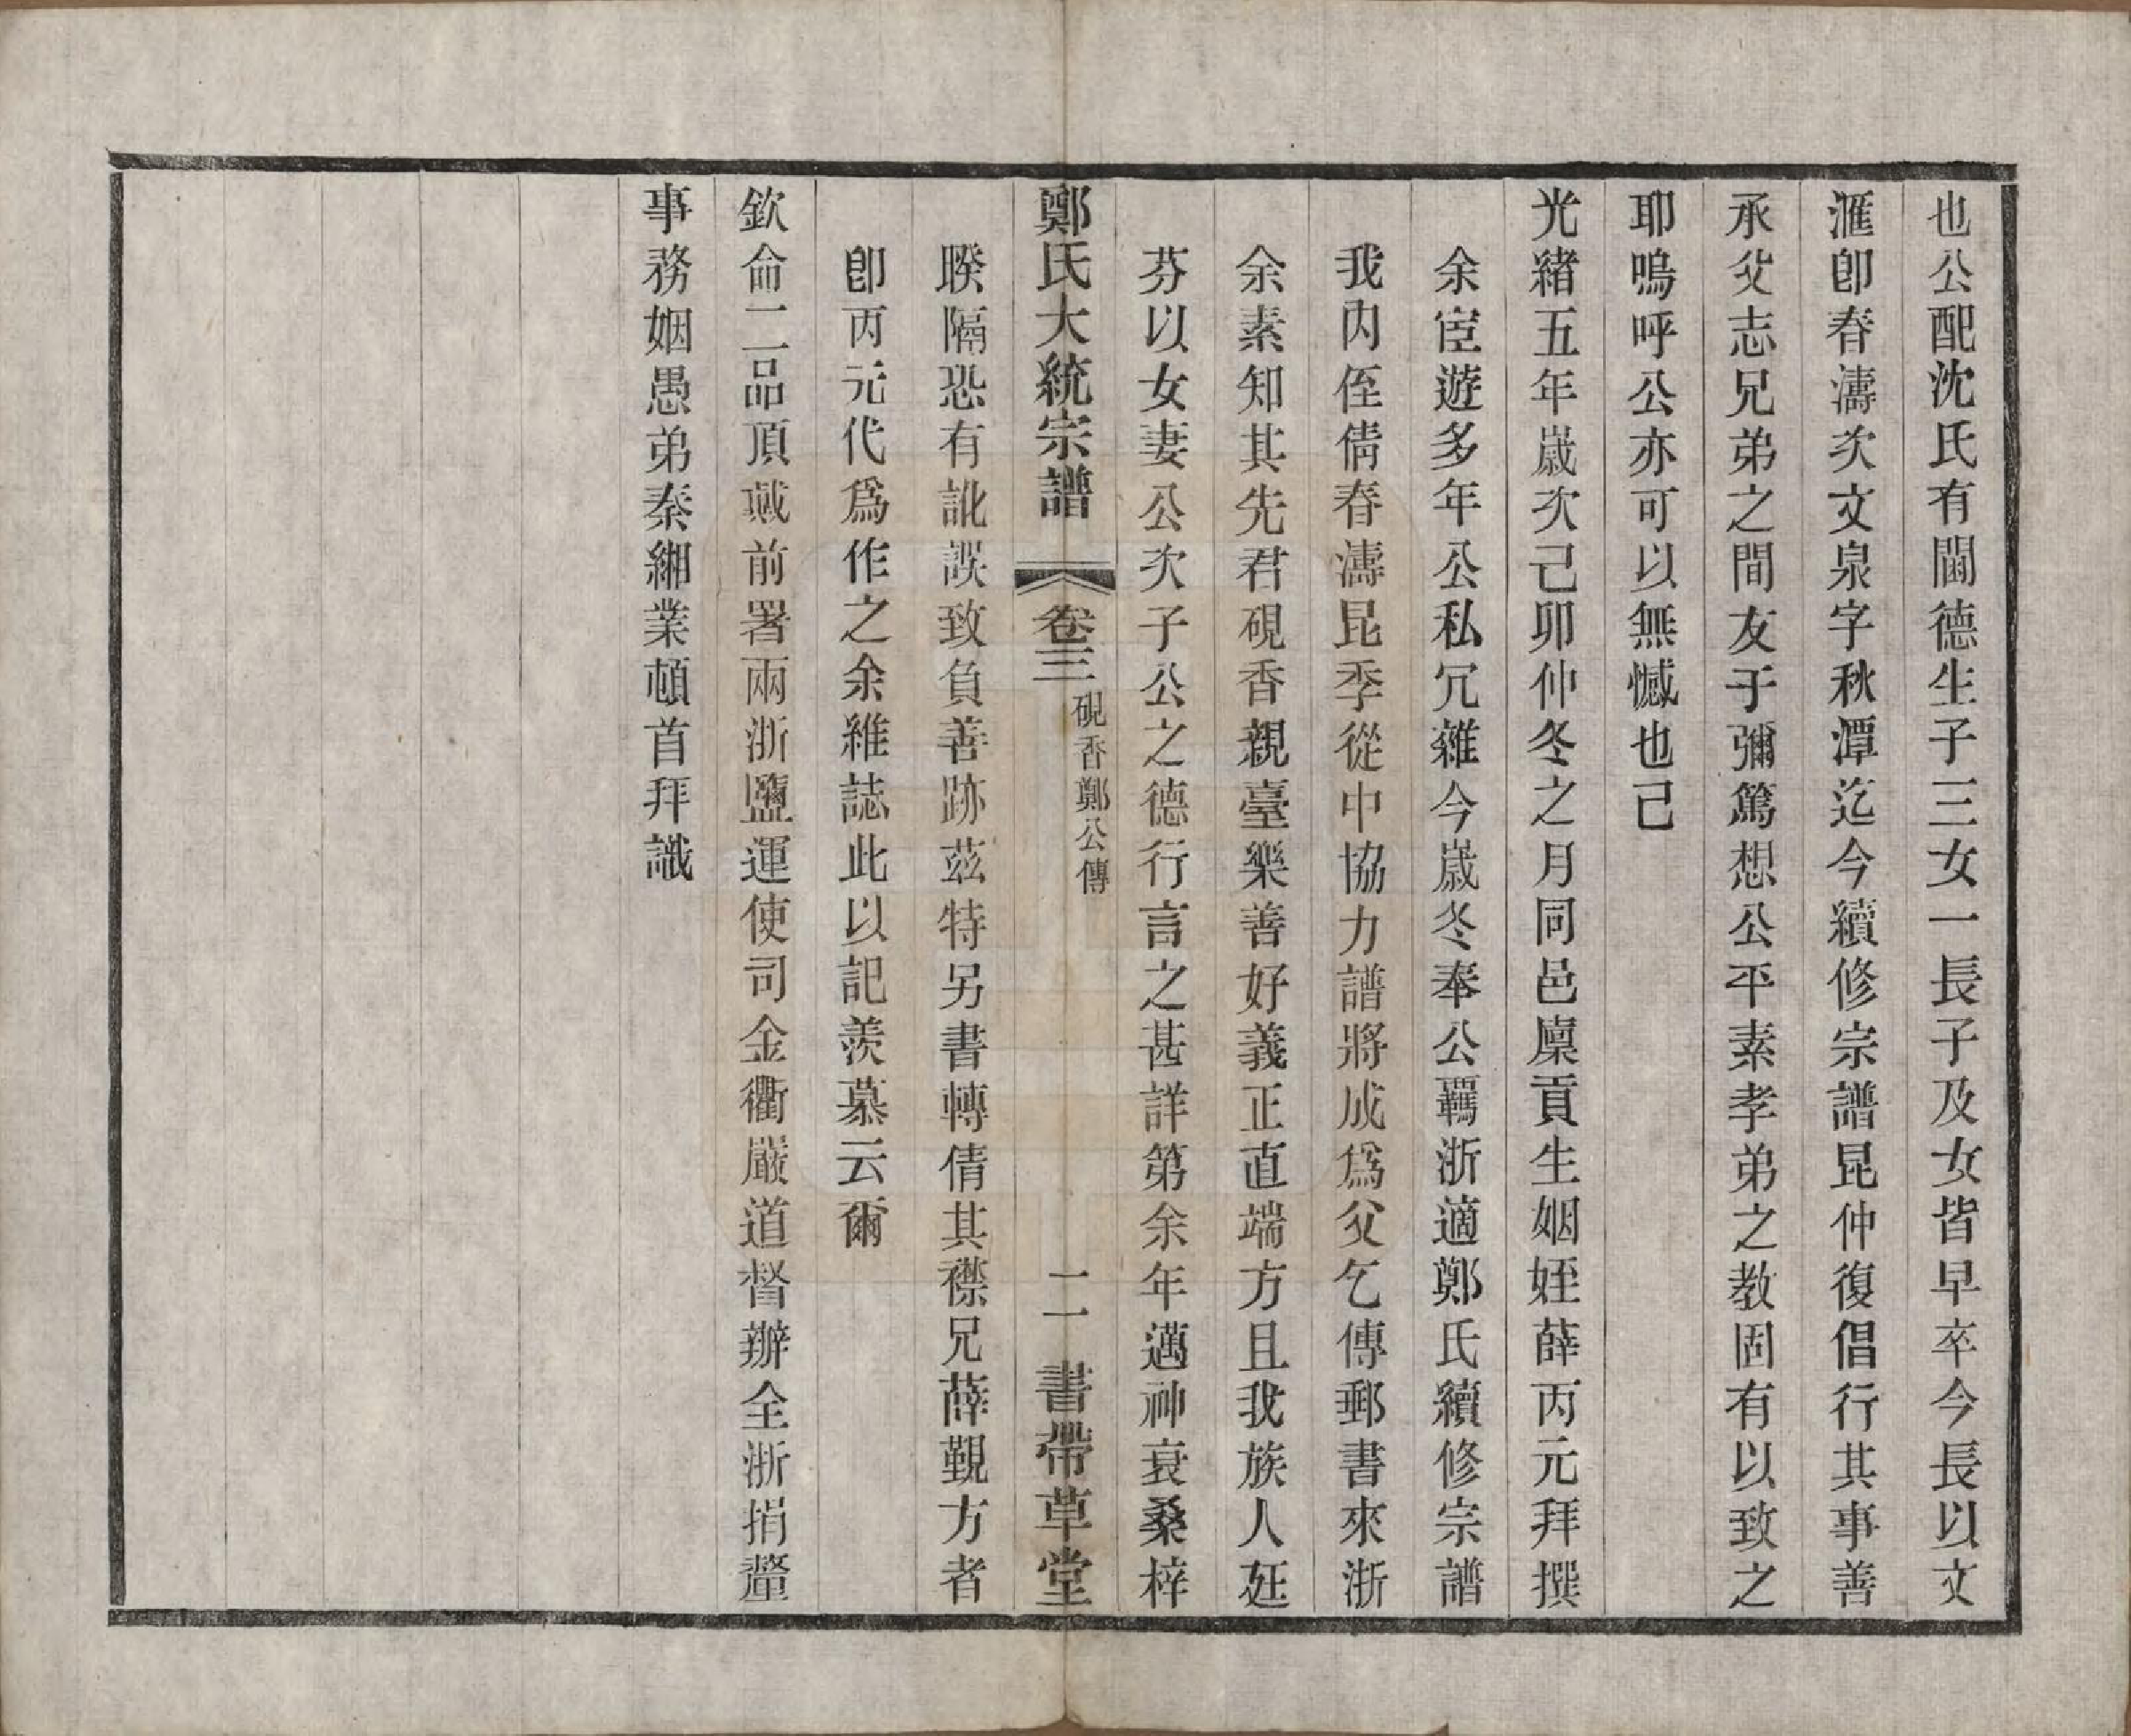 也公配沈氏有閫德生子三女一長子及女皆早卒今長以文
滙卽春濤次文泉字秋潭迄今續修宗譜昆仲復倡行其事善
承父志兄弟之間友于彌篤想公平素孝弟之教固有以致之
耶嗚呼公亦可以無憾也已
光緒五年嵗次己卯仲冬之月同邑廩貢生姻姪薛丙元拜撰
余宦遊多年公私冗雜今嵗冬奉公覊浙適鄭氏續修宗譜
我內侄倩春濤昆季從中協力譜將成爲父乞傳郵書來浙
余素知其先君硯香親臺樂善好義正直端方且我族人廷
芬以女妻公次子公之德行言之甚詳第余年邁神衰桑梓
鄭氏大統宗譜 卷三 硯香鄭公傳 二一 書帶草堂
睽隔恐有訛誤致負善跡茲特另書轉倩其襟兄薛覲方者
卽丙元代爲作之余維誌此以記羨慕云爾
欽命二品頂戴前署兩浙鹽運使司金衢嚴道督辦全浙捐釐
事務姻愚弟秦緗業頓首拜識